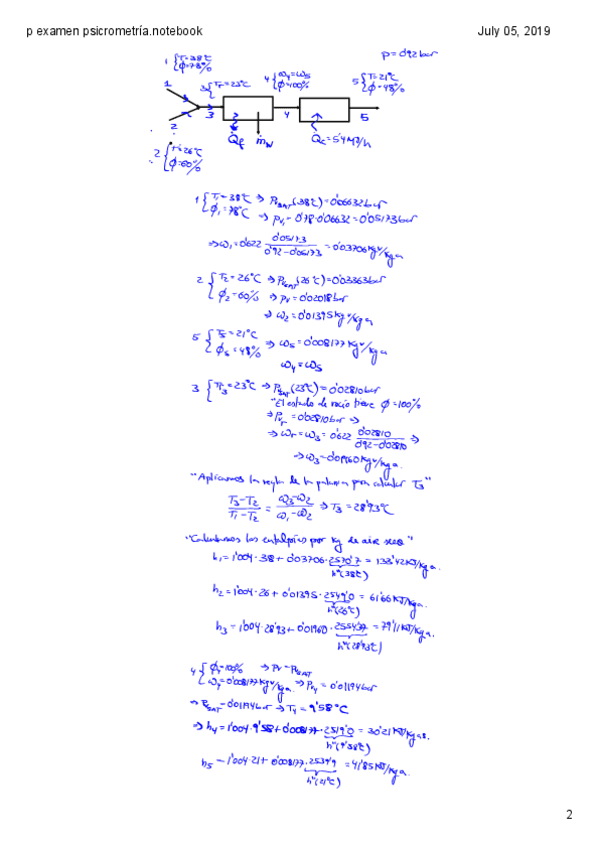 p examen psicrometría.notebook
July 05, 2019
p=0'92 bar
1 { T=38ºC
ϕ=78%
3 { Tr=23ºC
4 { ω4=ω5
ϕ=100%
5 { T=21ºC
ϕ=48%
1
2
3
4
5
Q̇f
ṁw
Q̇c=54MJ/h
2 { T=26ºC
ϕ=60%
1 { T1=38ºC ⇒ PSAT(38ºC)=0'06632bar
ϕ1=78% ⇒ pv1=0'78·0'06632=0'05173bar
⇒ω1=0'622 0'05173/(0'92-0'05173) = 0'03706Kgv/Kga
2 { T2=26ºC ⇒ PSAT(26ºC)=0'03363bar
ϕ2=60% ⇒ pv=0'02018bar
⇒ ω2=0'01395Kgv/Kga
5 { T5=21ºC
ϕ5=48% ⇒ ω5=0'008177Kgv/Kga
ω4=ω5
3 { Tr3=23ºC ⇒ PSAT(23ºC)=0'02810bar
"El estado de rocío tiene ϕ=100%
⇒ Pvr=0'02810bar ⇒
⇒ ωr=ω3=0'622 0'02810/(0'92-0'02810) ⇒
⇒ω3=0'01960Kgv/Kga.
"Aplicamos la regla de la palanca para calcular T3"
(T3-T2)/(T1-T2) = (ω3-ω2)/(ω1-ω2) ⇒ T3=28'93ºC
"Calculamos las entalpías por Kg de aire seco"
h1=1'004·38+0'03706·2570'7 = 133'42KJ/Kga.
h"(38ºC)
h2=1'004·26+0'01395·2549'0 = 61'66KJ/Kga.
h"(26ºC)
h3=1'004·28'93+0'01960·2554'37=79'11KJ/Kga.
h"(28'93ºC)
4 { ϕ4=100% ⇒ Pv=PSAT
ω4=0'008177Kgv/Kga ⇒ Pv4=0'01194bar
⇒ PSAT=0'01194bar ⇒ T4=9'58ºC
⇒ h4=1'004·9'58+0'008177·2519'0 = 30'21KJ/Kga.
h"(9'58ºC)
h5=1'004·21+0'008177·2539'9=41'85KJ/Kga.
h"(21ºC)
2